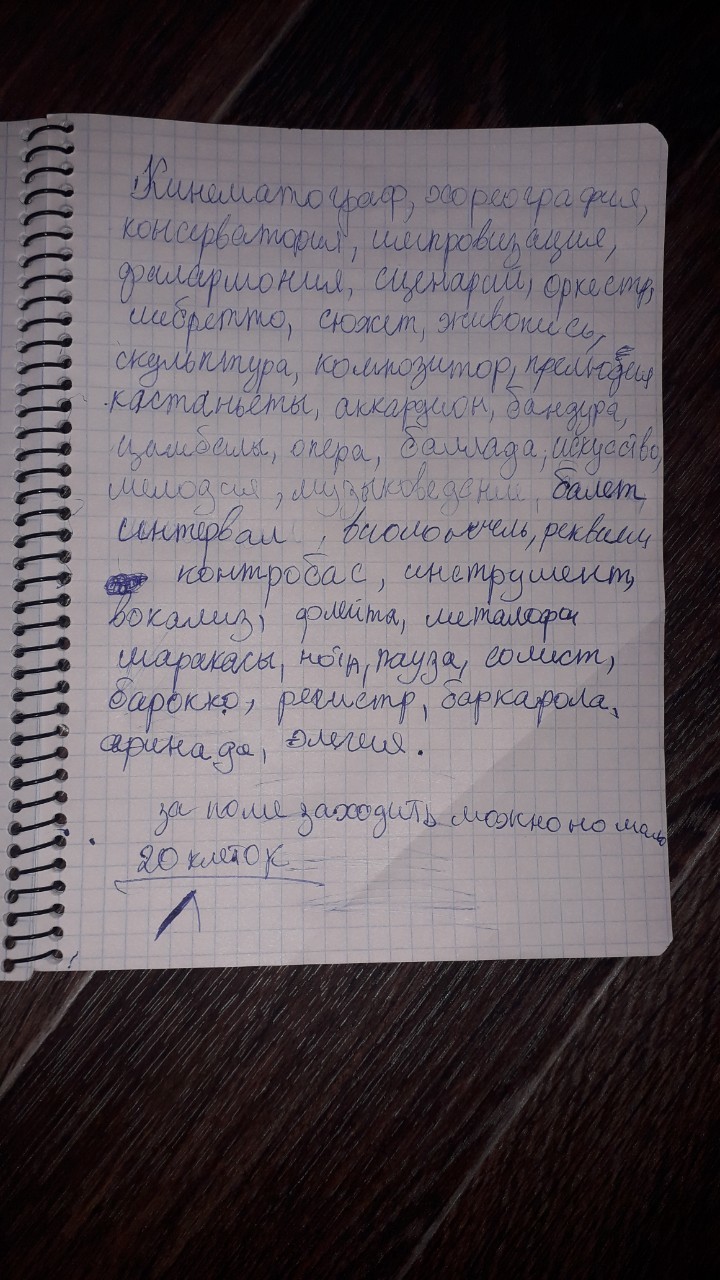 Кинематограф, хореография,
консерватория, импровизация,
филармония, сценарий, оркестр,
либретто, сюжет, живопись,
скульптура, композитор, прелюдия
кастаньеты, аккардион, бандура,
цимбалы, опера, баллада, искусство,
мелодия, музыковедени балет,
интервал, виолончель, реквием
контробас, инструмент,
вокализ, флейта, металофон
маракасы, пауза, солист,
барокко, регистр, баркарола,
элегия.
за поле заходить можно но мало
20 клеток